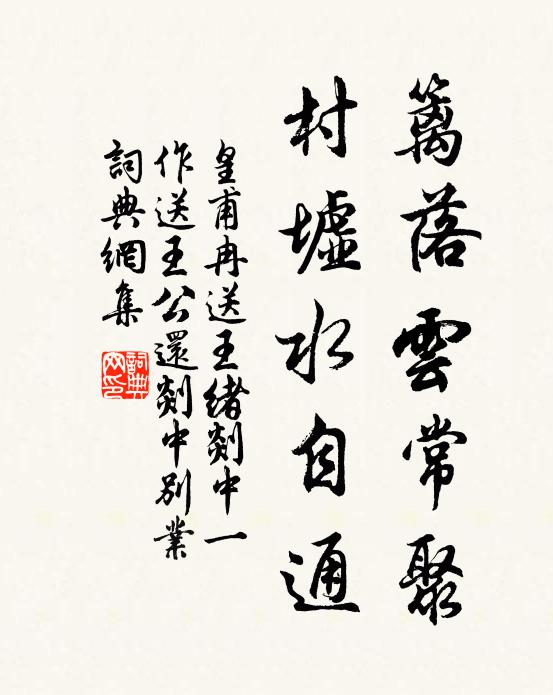 籬落雲常聚
村墟水自通
皇甫冉送王緒剡中一
作送王公還剡中別業
詞典網集
詞典
网印